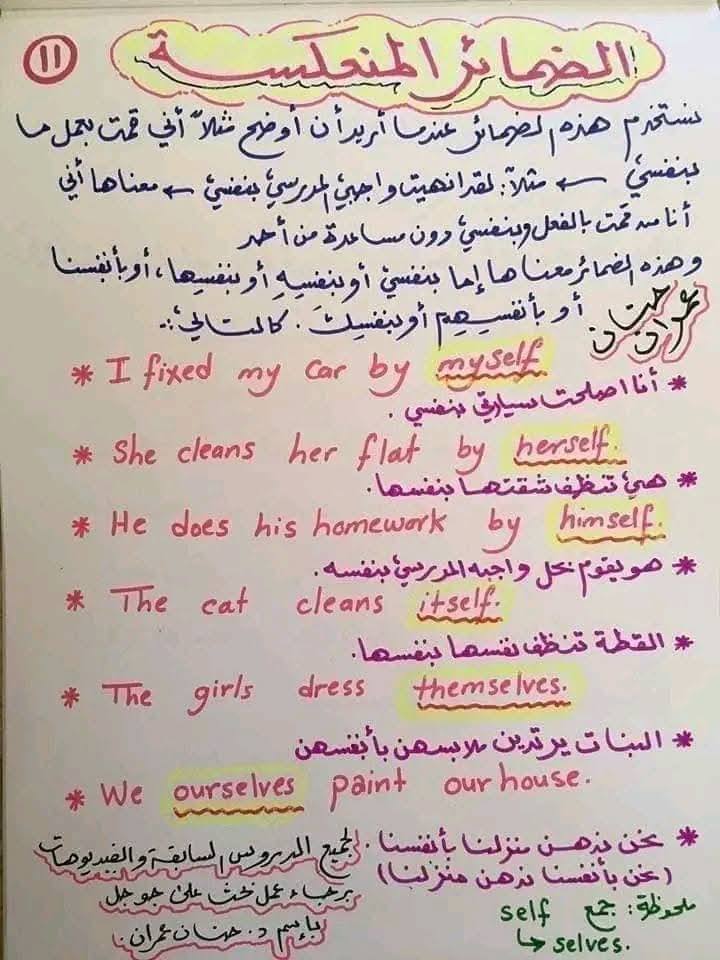 ١١
الضمائر المنعكسة
نستخدم هذه الضمائر عندما أريد أن أوضح مثلاً أني قمت بعمل ما
بنفسي ← مثلاً: لقد انهيت واجبي المدرسي بنفسي ← معناها أني
أنا من قمت بالفعل وبنفسي دون مساعدة من أحد
وهذه الضمائر معناها إما بنفسي أو بنفسِهِ أو بنفسِها، أو بأنفسنا
أو بأنفسِهِم أو بنفسِك. كالتالي:.
حنان
عمران
* I fixed my car by myself
* أنا اصلحت سيارتي بنفسي.
* She cleans her flat by herself.
* هي تنظف شقتها بنفسها.
* He does his homework by himself.
* هو يقوم بحل واجبه المدرسي بنفسه.
* The cat cleans itself.
* القطة تنظف نفسها بنفسها.
* The girls dress themselves.
* البنات يرتدين ملابسهن بأنفسهن
* We ourselves paint our house.
* نحن ندهن منزلنا بأنفسنا.
(نحن بأنفسنا ندهن منزلنا)
ملحوظة: جمع self
↳ selves.
لجميع الدروس السابقة والفيديوهات
برجاء عمل بحث على جوجل
بإسم د. حنان عمران.